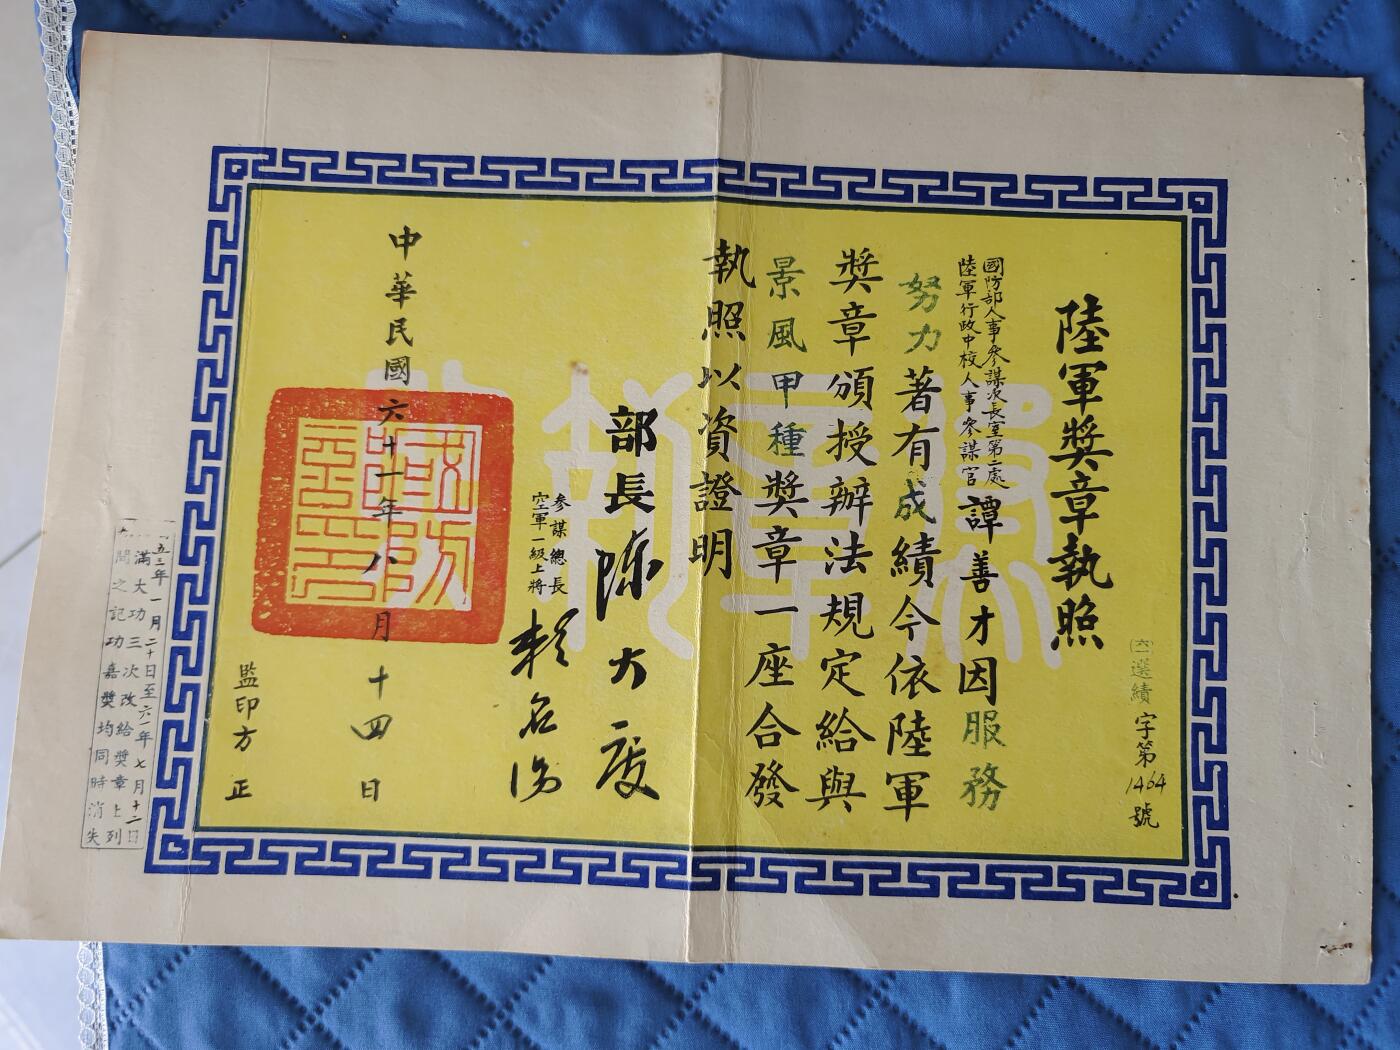 陸軍獎章執照
(六一)選績字第1464號
國防部人事參謀次長室第二處
陸軍行政中校人事參謀官
譚善才因服務
努力著有成績今依陸軍
獎章頒授辦法規定給與
景風甲種獎章一座合發
執照以資證明
部長陳大慶
參謀總長
空軍一級上將
賴名湯
中華民國六十一年八月十四日
監印方正
國防
五三年一月二十日至六一年七月十二日
滿大功三次改給獎章上列
間之記功嘉獎均同時消失
陸軍